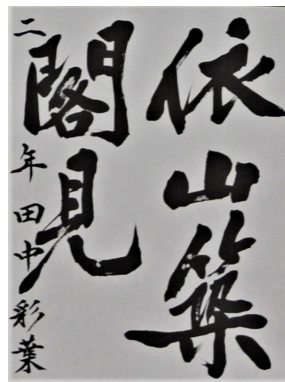 依山築
閣見
二年田中彩葉